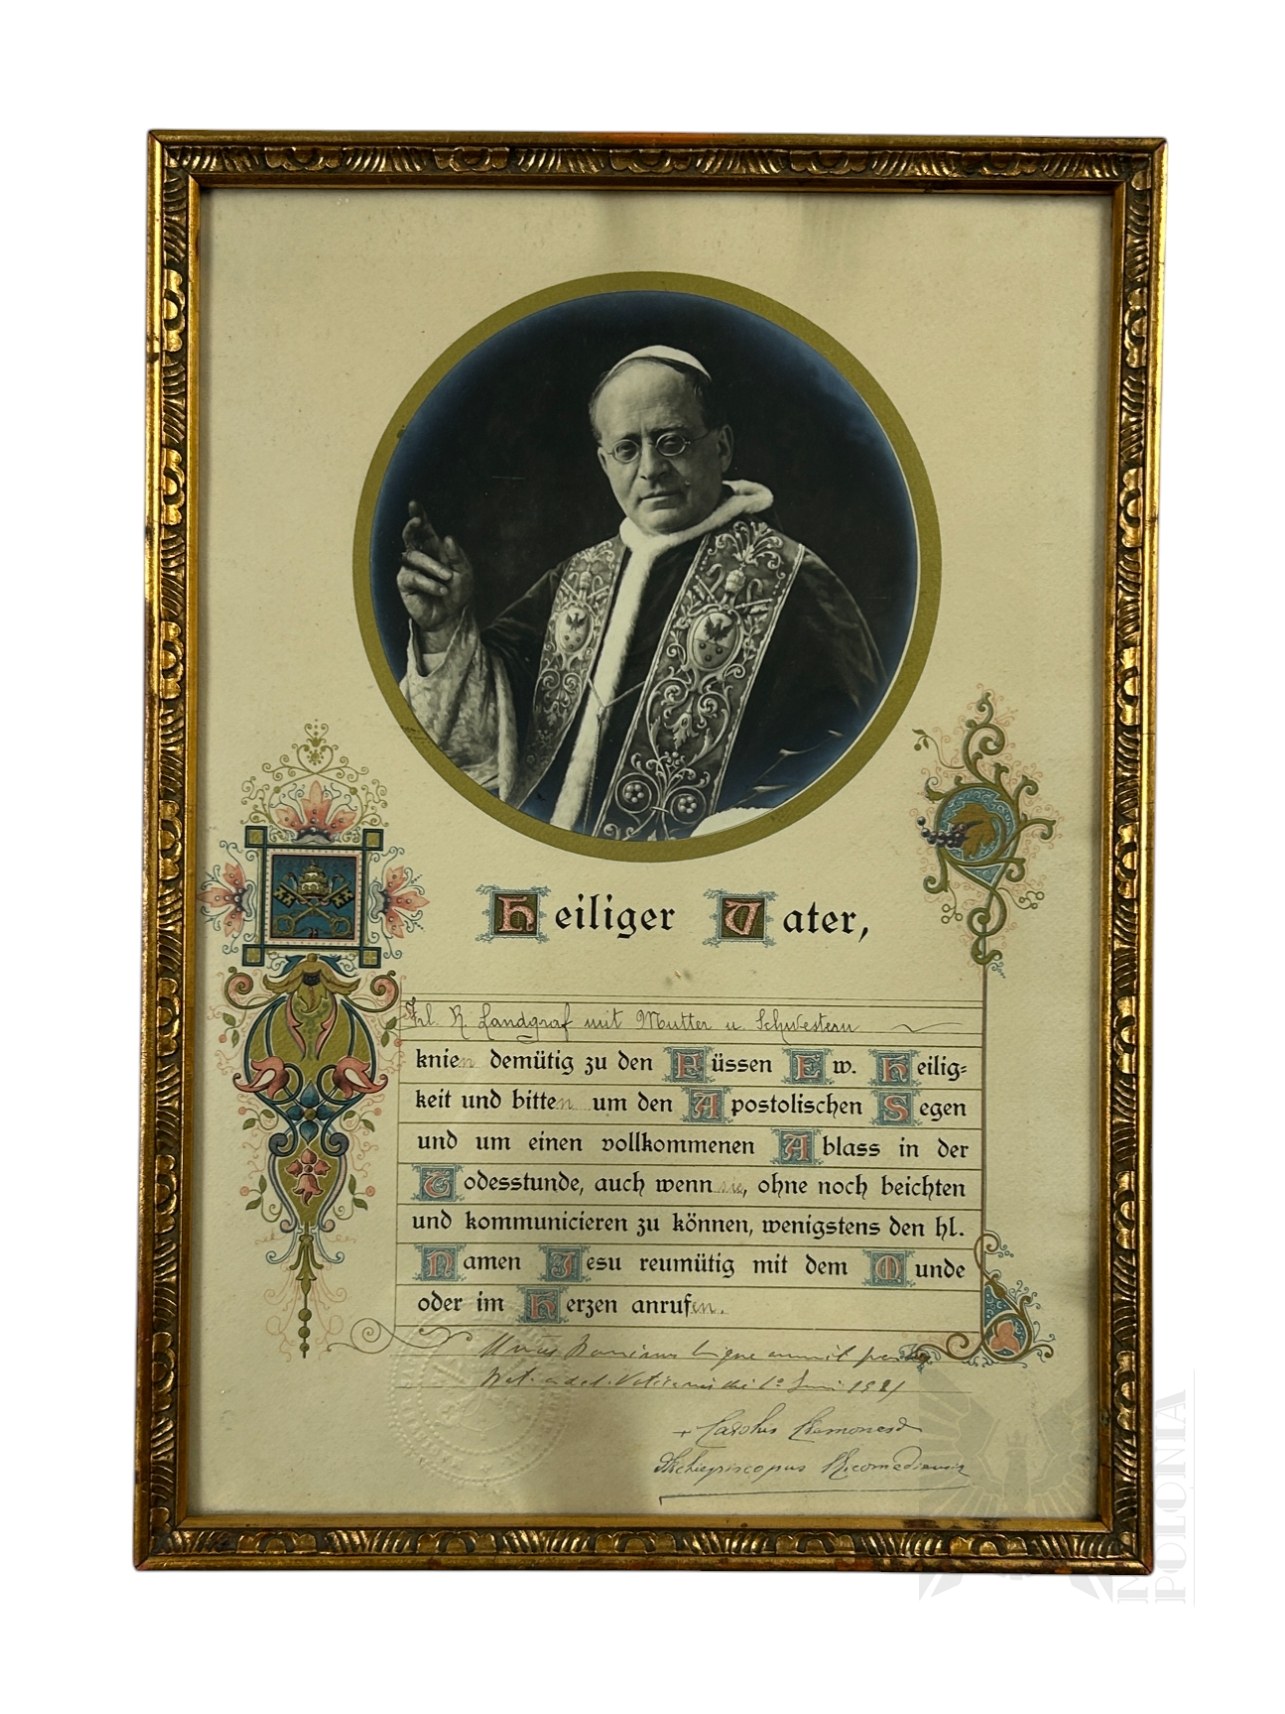 Heiliger Vater,
Frl. R. Landgraf mit Mutter u. Schwestern
knien demütig zu den Füssen Ew. Heilig-
keit und bitten um den Apostolischen Segen
und um einen vollkommenen Ablass in der
Todesstunde, auch wenn sie, ohne noch beichten
und kommunicieren zu können, wenigstens den hl.
Namen Jesu reumütig mit dem Munde
oder im Herzen anrufen.
+ Carolus
Archiepiscopus Nicomediensis
POLONIA